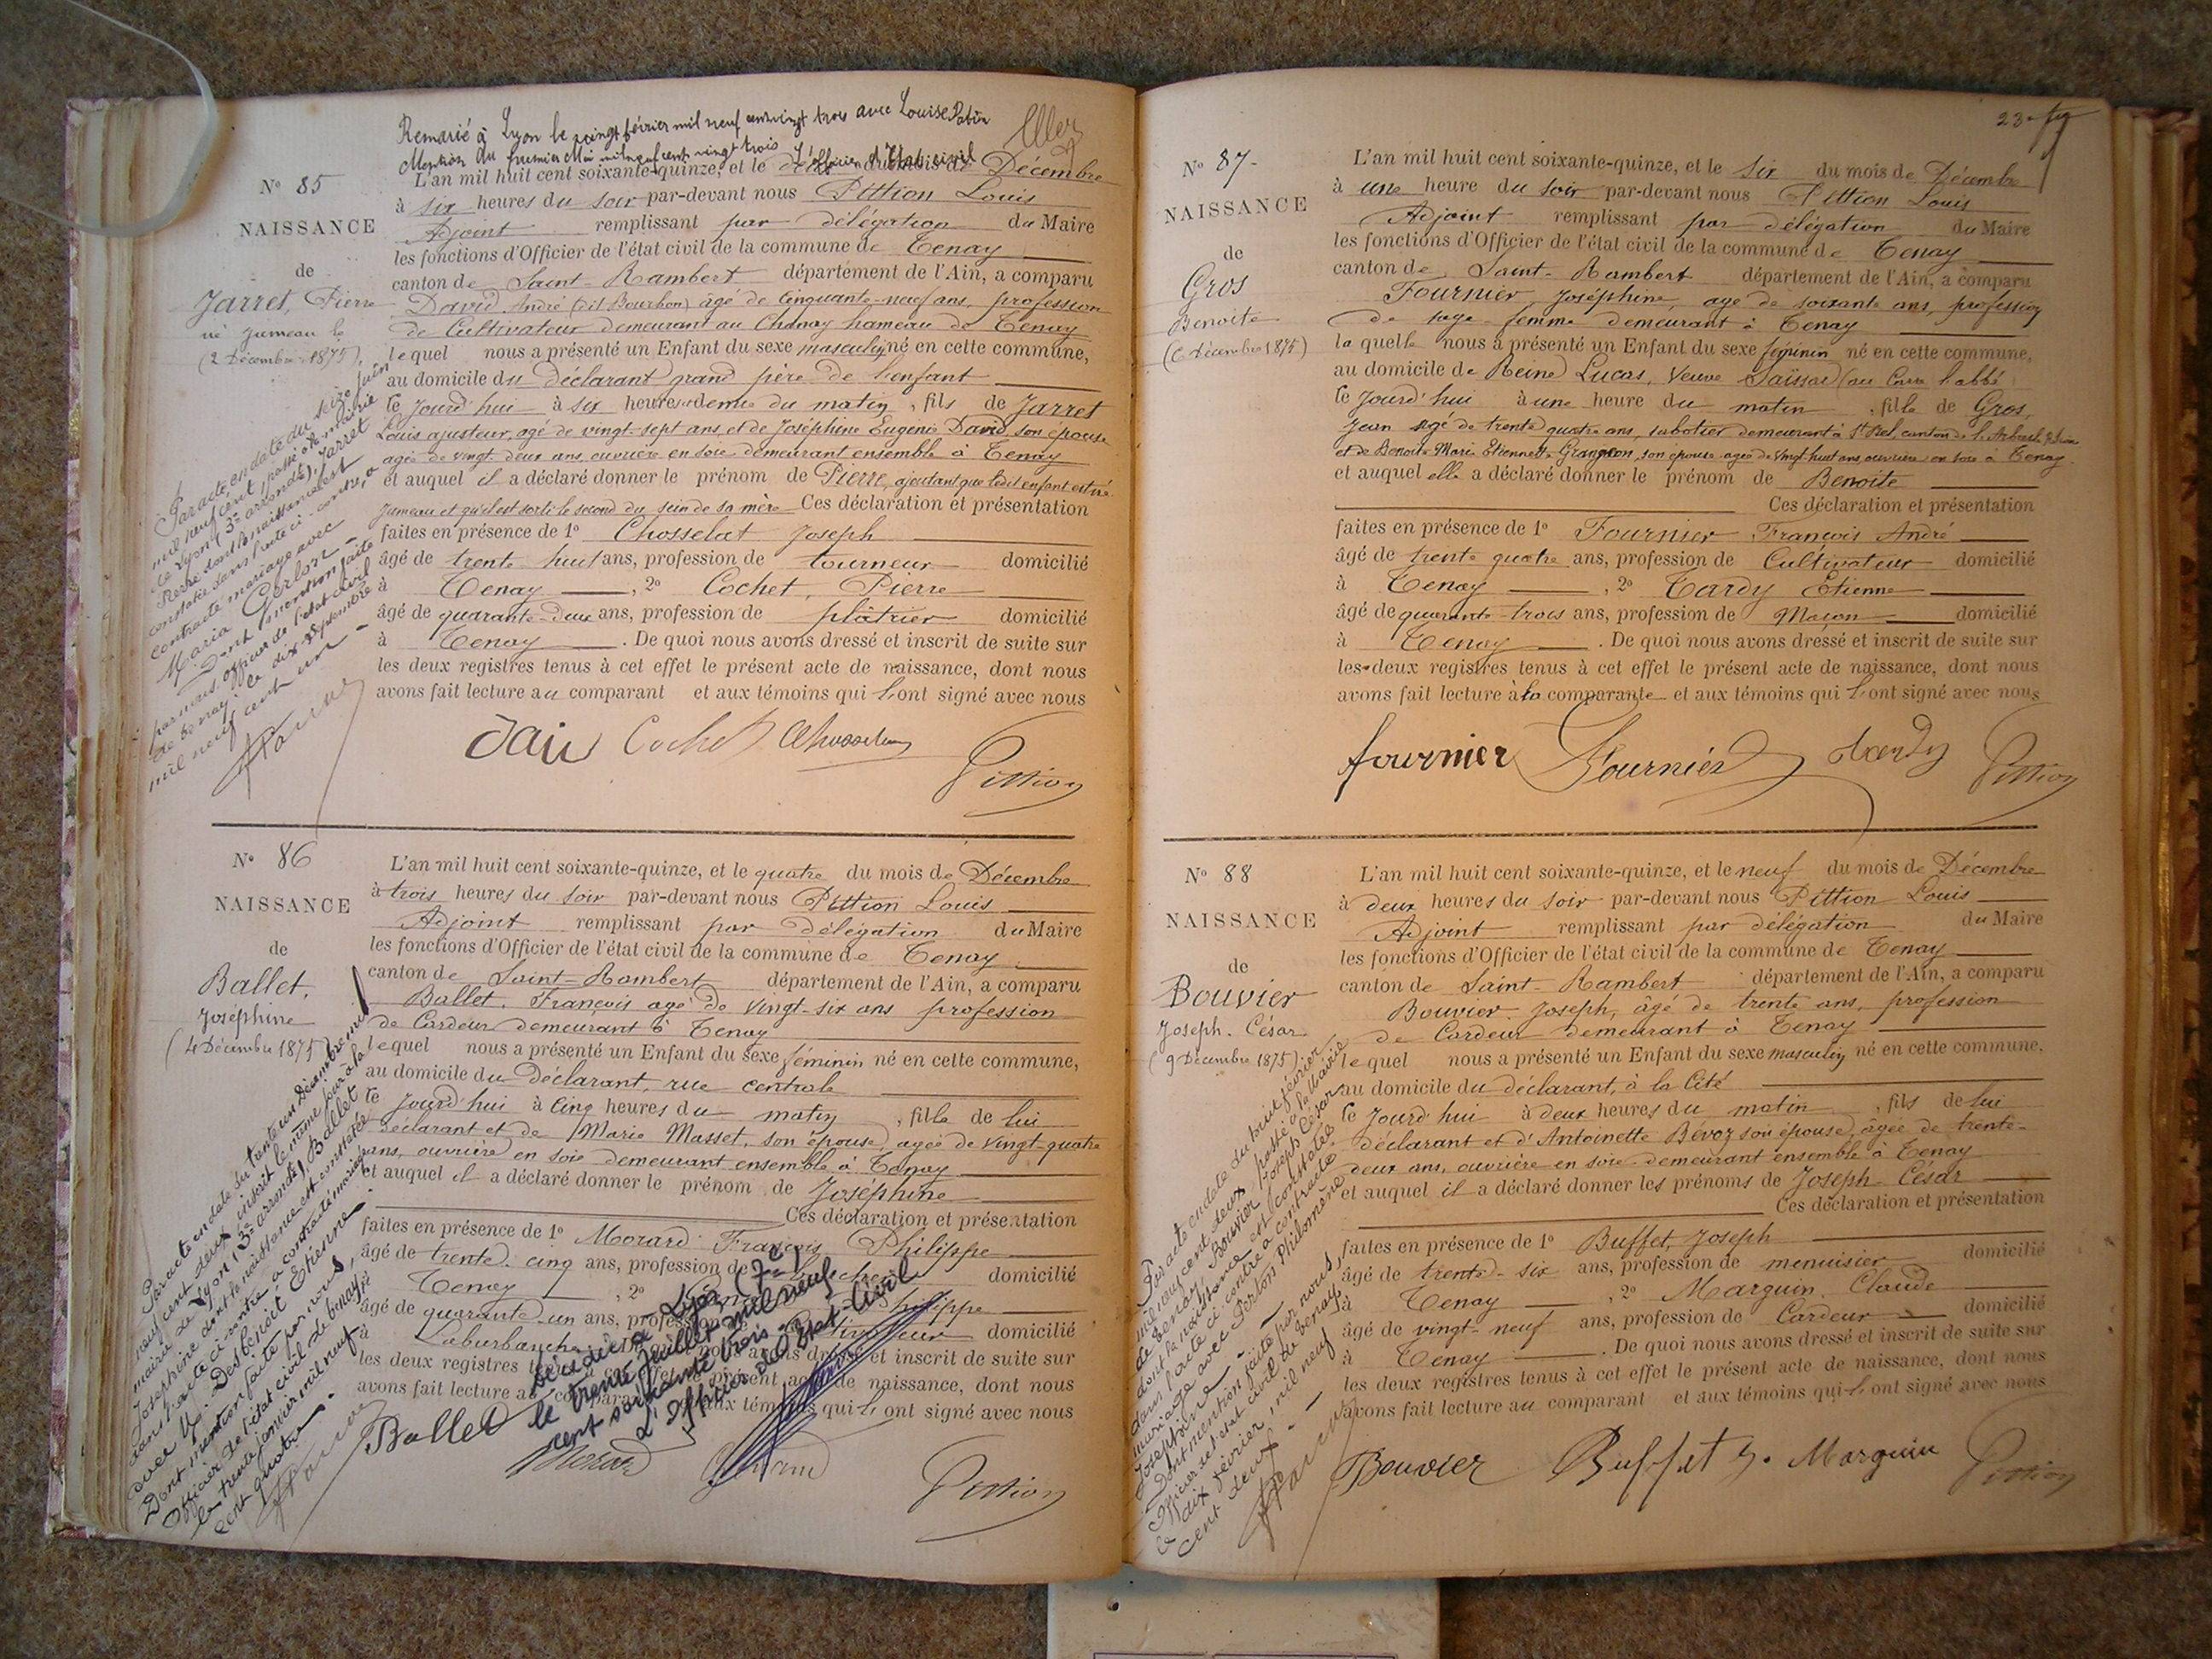 Remarié à Lyon le vingt février mil neuf cent vingt trois avec Louise
Mention du premier Mai mil neuf cent vingt trois L'officier d'Etat civil
N° 85
NAISSANCE
de
Jarret, Pierre
né Jumeau le
(2 Décembre 1875)
L'an mil huit cent soixante-quinze, et le deux du mois de Décembre
à six heures du soir par-devant nous Pittion Louis
Adjoint remplissant par délégation du Maire
les fonctions d'Officier de l'état civil de la commune de Tenay
canton de Saint-Rambert département de l'Ain, a comparu
David André (dit Bourbon) âgé de cinquante-neuf ans, profession
de Cultivateur demeurant au Chanay hameau de Tenay
lequel nous a présenté un Enfant du sexe masculin né en cette commune,
au domicile du déclarant grand père de l'enfant
ce jourd'hui à six heures et demie du matin, fils de Jarret
Louis ajusteur, agé de vingt-sept ans, et de Joséphine Eugenie David, son épouse
agée de vingt-deux ans, ouvrière en soie demeurant ensemble à Tenay
et auquel il a déclaré donner le prénom de Pierre, ajoutant que ledit enfant est né
Jumeau et qu'il est sorti le second du sein de sa mère Ces déclaration et présentation
faites en présence de 1° Chosselat Joseph
âgé de trente huit ans, profession de tourneur domicilié
à Tenay, 2° Cochet, Pierre
âgé de quarante-deux ans, profession de plâtrier domicilié
à Tenay. De quoi nous avons dressé et inscrit de suite sur
les deux registres tenus à cet effet le présent acte de naissance, dont nous
avons fait lecture au comparant et aux témoins qui l'ont signé avec nous
Par acte en date du seize juin
mil neuf cent, passé à la mairie
de Lyon (3e arrondt), Jarret
Pierre dont la naissance est
constatée dans l'acte ci-contre, a
contracté mariage avec
Maria Gorlon
Dont mention faite
par nous, officier de l'état civil
de Tenay, le dix septembre
mil neuf cent un
Cochet Chosselat
Pittion
N° 86
NAISSANCE
de
Ballet,
Joséphine
(4 Décembre 1875)
L'an mil huit cent soixante-quinze, et le quatre du mois de Décembre
à trois heures du soir par-devant nous Pittion Louis
Adjoint remplissant par délégation du Maire
les fonctions d'Officier de l'état civil de la commune de Tenay
canton de Saint-Rambert département de l'Ain, a comparu
Ballet, François agé de vingt-six ans profession
de Cardeur demeurant à Tenay
lequel nous a présenté un Enfant du sexe féminin né en cette commune,
au domicile du Déclarant, rue centrale
ce jourd'hui à cinq heures du matin, fille de lui
déclarant et de Marie Masset, son épouse, agée de vingt-quatre
ans, ouvrière en soie demeurant ensemble à Tenay
et auquel il a déclaré donner le prénom de Joséphine
Ces déclaration et présentation
faites en présence de 1° Morard François Philippe
âgé de trente-cinq ans, profession de domicilié
Tenay, 2° Philippe
âgé de quarante-un ans, profession de Cultivateur domicilié
à
les deux registres tenus à cet effet le présent acte de naissance, dont nous
avons fait lecture au comparant et aux témoins qui l'ont signé avec nous
Par acte en date du trente un Décembre mil
neuf cent deux, inscrit le même jour à la
mairie de Lyon (3e arrondt), Ballet
Joséphine dont la naissance est constatée
dans l'acte ci-contre a contracté mariage
avec M. Desbenoit Etienne
Dont mention faite par nous,
Officier de l'état civil de Tenay,
le trente janvier mil neuf
cent quatre
Décédée à Lyon (7e)
le trente Juillet mil neuf
cent soixante trois
L'Officier de l'Etat-Civil
Ballet
Morard
Pittion
N° 87
NAISSANCE
de
Gros
Benoite
(6 décembre 1875)
L'an mil huit cent soixante-quinze, et le six du mois de Décembre
à une heure du soir par-devant nous Pittion Louis
Adjoint remplissant par délégation du Maire
les fonctions d'Officier de l'état civil de la commune de Tenay
canton de Saint-Rambert département de l'Ain, a comparu
Fournier, Joséphine, agé de soixante ans, profession
de sage-femme demeurant à Tenay
la quelle nous a présenté un Enfant du sexe féminin né en cette commune,
au domicile de Reine Lucas, veuve
ce jourd'hui à une heure du matin, fille de Gros,
Jean agé de trente quatre ans, sabotier demeurant à St Bel, canton de l'Arbresle, Rhône
et de Benoite Marie Etiennette Grangeon, son épouse agée de vingt huit ans ouvrière en soie à Tenay
et auquel elle a déclaré donner le prénom de Benoite
Ces déclaration et présentation
faites en présence de 1° Fournier François André
âgé de trente quatre ans, profession de Cultivateur domicilié
à Tenay, 2° Tardy Etienne
âgé de quarante-trois ans, profession de Maçon domicilié
à Tenay. De quoi nous avons dressé et inscrit de suite sur
les deux registres tenus à cet effet le présent acte de naissance, dont nous
avons fait lecture à la comparante et aux témoins qui l'ont signé avec nous
fournier Fournier Tardy Pittion
N° 88
NAISSANCE
de
Bouvier
Joseph. César.
(9 Décembre 1875)
L'an mil huit cent soixante-quinze, et le neuf du mois de Décembre
à deux heures du soir par-devant nous Pittion Louis
Adjoint remplissant par délégation du Maire
les fonctions d'Officier de l'état civil de la commune de Tenay
canton de Saint-Rambert département de l'Ain, a comparu
Bouvier, Joseph, âgé de trente ans, profession
de Cardeur demeurant à Tenay
lequel nous a présenté un Enfant du sexe masculin né en cette commune,
au domicile du déclarant, à la Cité
ce jourd'hui à deux heures du matin, fils de lui
déclarant et d'Antoinette Bévoz son épouse, agée de trente-
deux ans, ouvrière en soie demeurant ensemble à Tenay
et auquel il a déclaré donner les prénoms de Joseph César
Ces déclaration et présentation
faites en présence de 1° Buffet, Joseph
âgé de trente-six ans, profession de menuisier domicilié
à Tenay, 2° Marguin, Claude
âgé de vingt-neuf ans, profession de Cardeur domicilié
à Tenay. De quoi nous avons dressé et inscrit de suite sur
les deux registres tenus à cet effet le présent acte de naissance, dont nous
avons fait lecture au comparant et aux témoins qui l'ont signé avec nous
Par acte en date du huit février
mil neuf cent deux, passé à la Mairie
de Tenay, Bouvier Joseph César
dont la naissance est constatée
dans l'acte ci-contre a contracté
mariage avec Perton Philomène
Joséphine
Dont mention faite par nous,
Officier de l'état civil de Tenay,
le dix février, mil neuf
cent deux
Bouvier Buffet J. Marguin Pittion